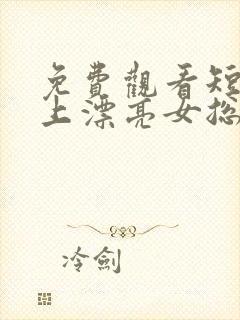 免費觀看短
上漂亮女總
冷劍